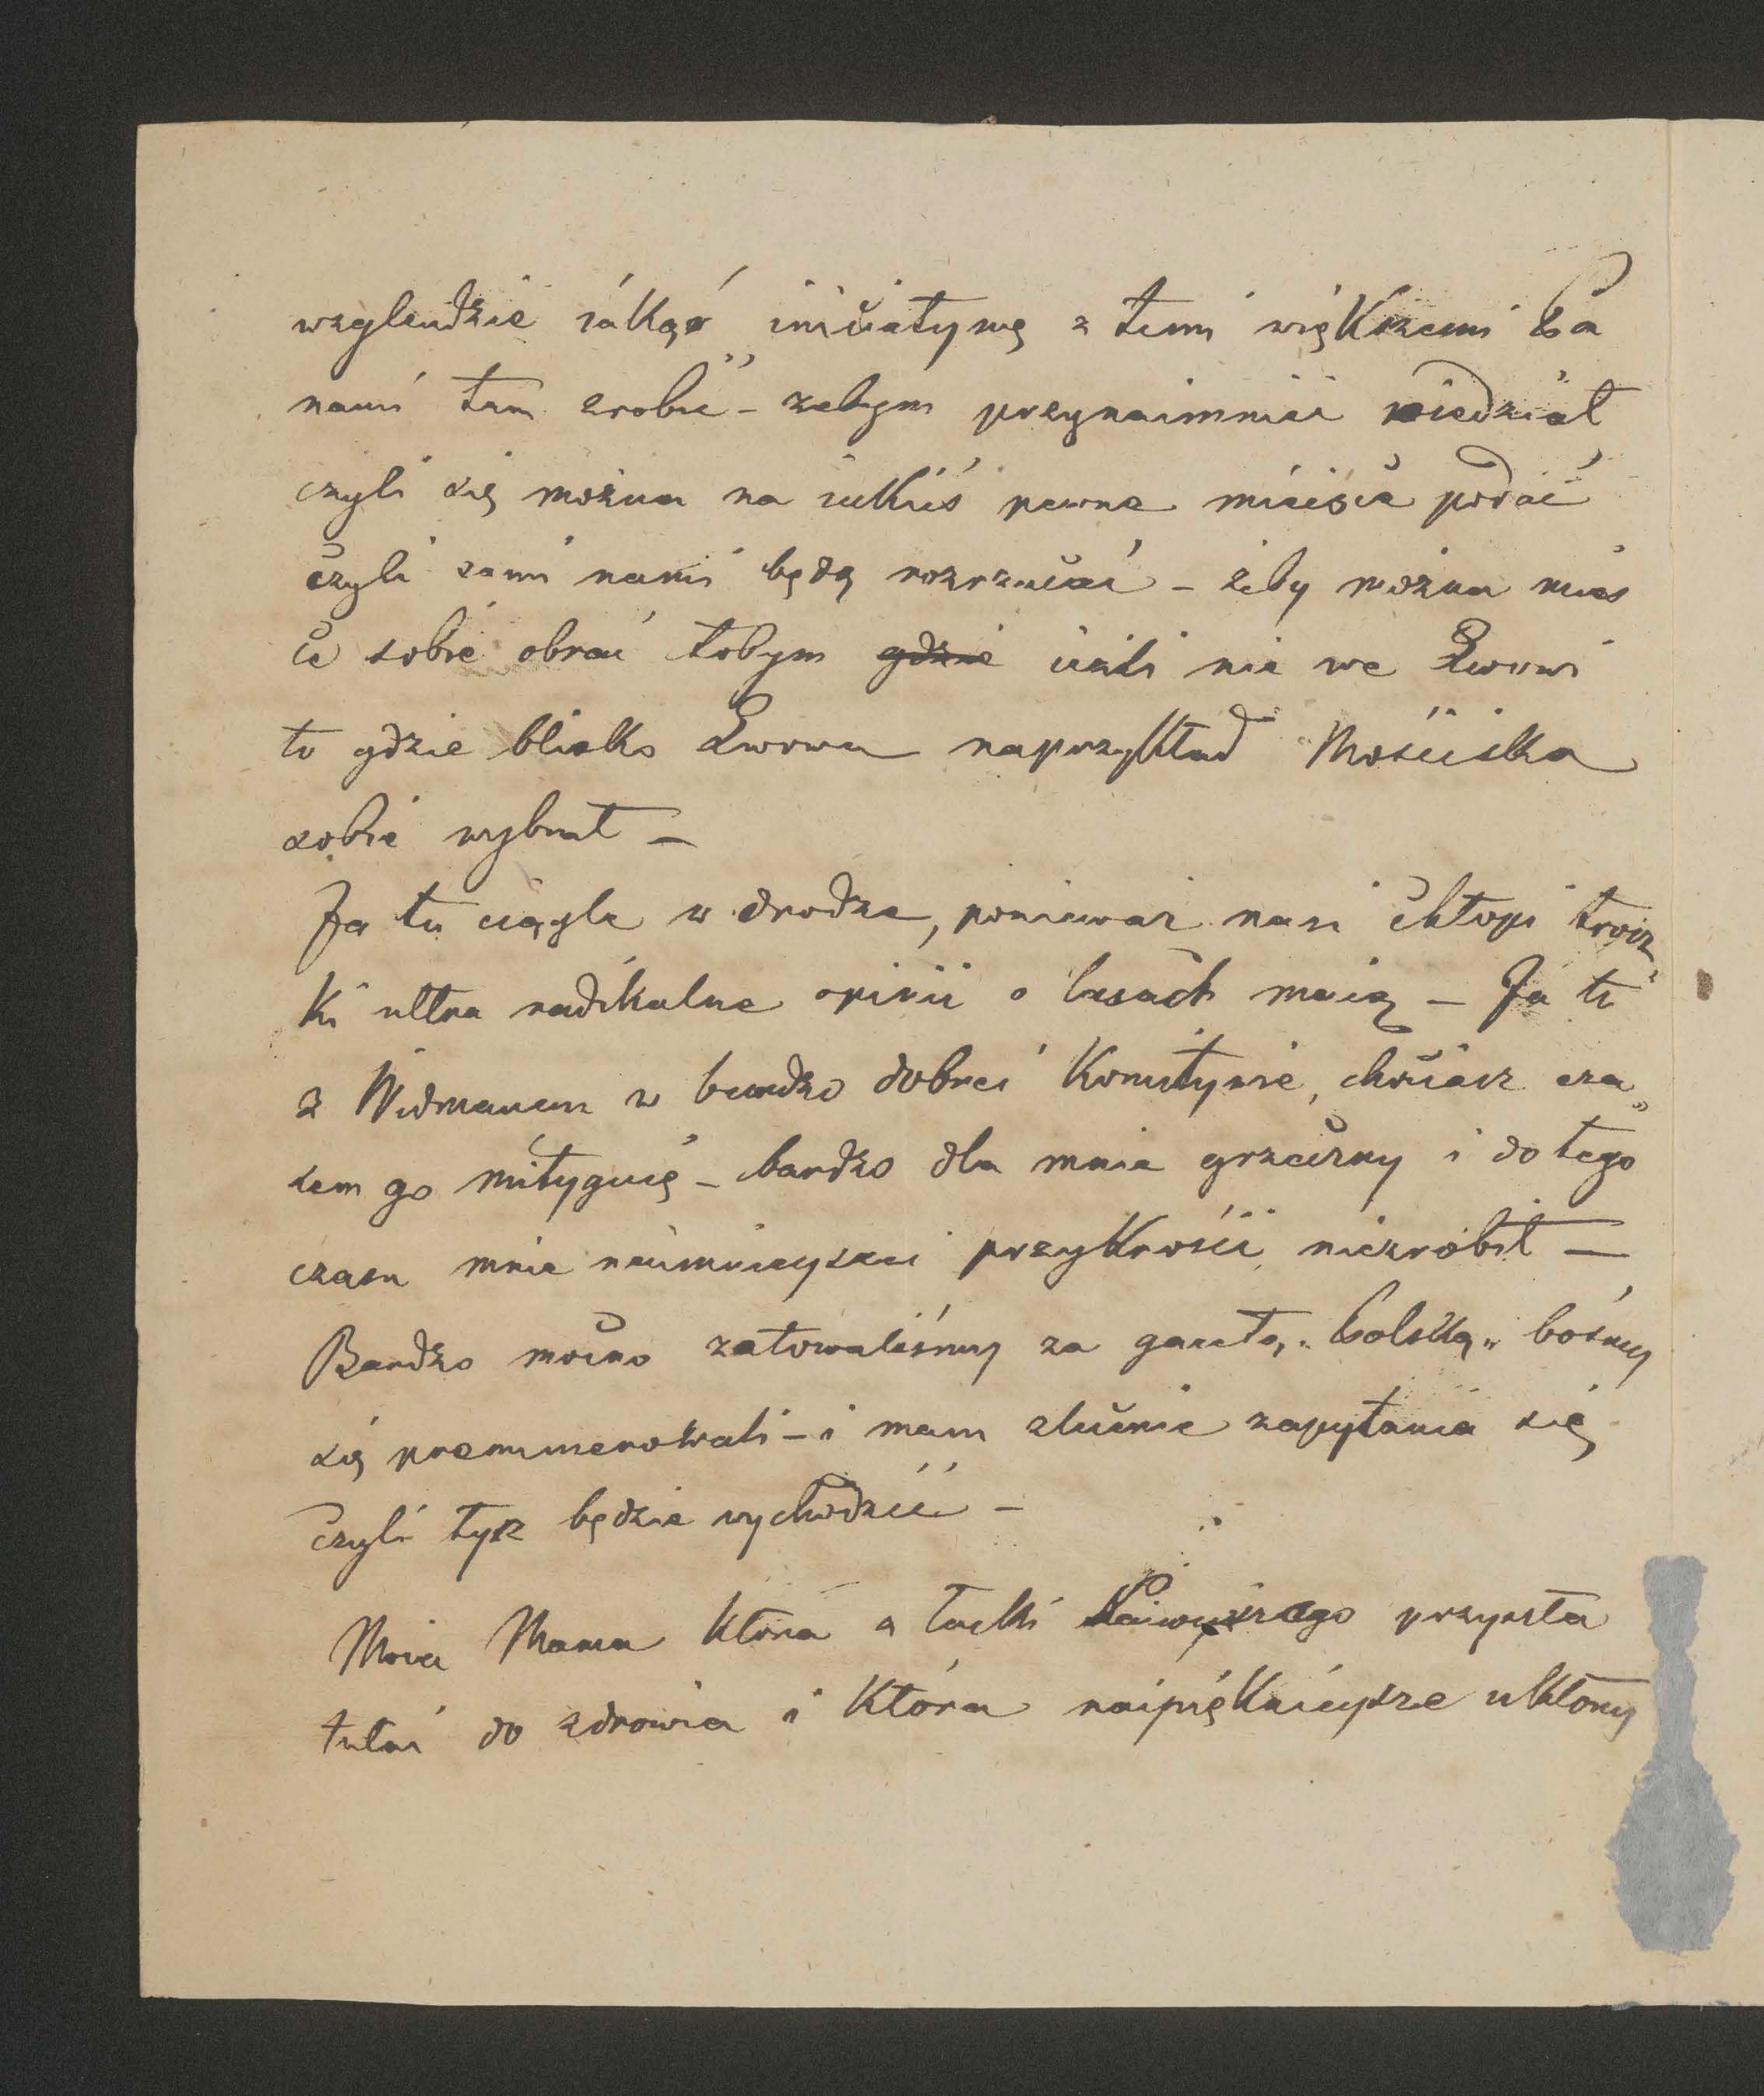 wzglendzie iakąś iniciatywę z temi większemi Pa
nami tam zrobić - zebym przynaimnii wiedział
czyli się można na iakieś pewne mieisce podać
czyli sami nami będą rozrzucać - żeby można mieis
ce sobie obrać tobym gdzie ieżli nie we Lwowi
to gdzie blisko Lwowa naprzykład Mościska
sobie wybrał -
Ja tu ciągle w drodze, poniewarz nasi chłopi trosz„
ki ultra radikalne opinii o lasach maią - Ja tu
z Widmanem w bardzo dobrei Komitywie, chociasz cza„
sem go mityguię - bardzo dla mnie grzeczny i do tego
czasu mnie naimnieyszei przykrości niezrobił -
Bardzo mocno załowaliśmy za gazetą „Polską„ bośmy
się premumerowali - i mam zlucenie zapytania się
czyli tysz będzie wychodzić -
Moia Mama która z łaski Naiwyższego przyszła
tutai do zdrowia i która naipięknieysze ukłony